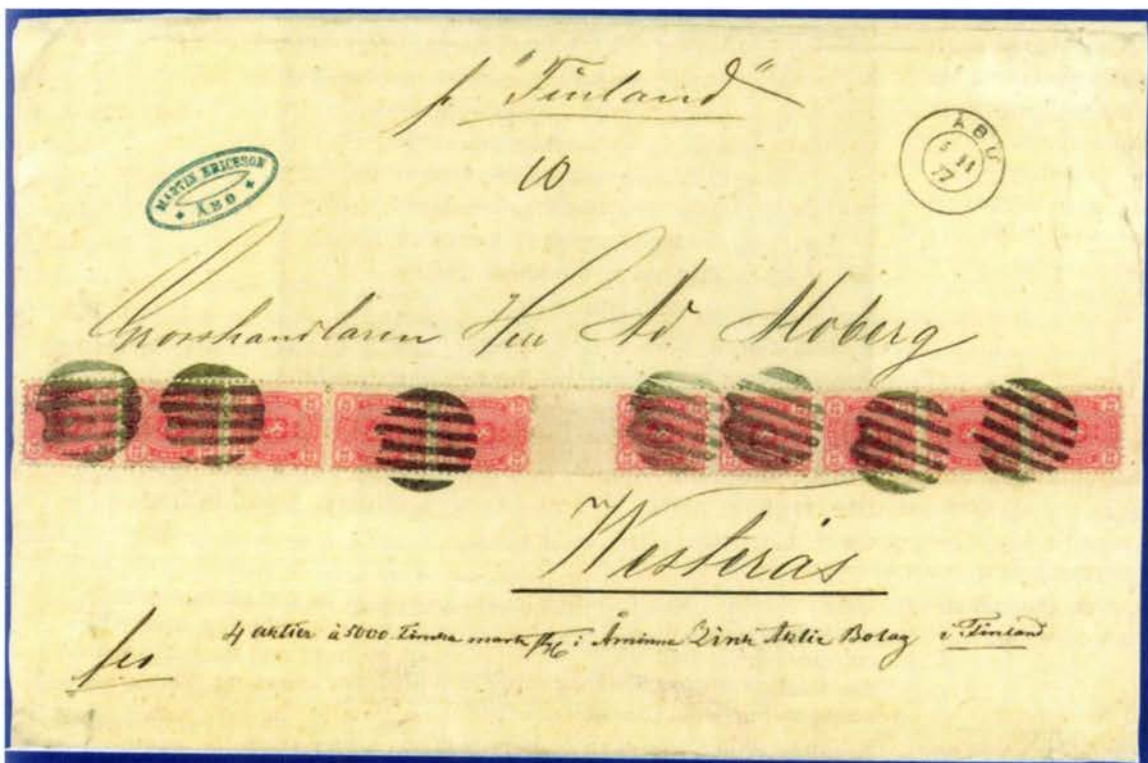 p "Finland"
10
MARTIN ERICSSON
ÅBO
ÅBO
5 11
77
Grosshandlaren Herr Ad. Moberg
Westerås
4 aktier à 5000 Finska mark i Åminne Zink Aktie Bolag i Finland
fco